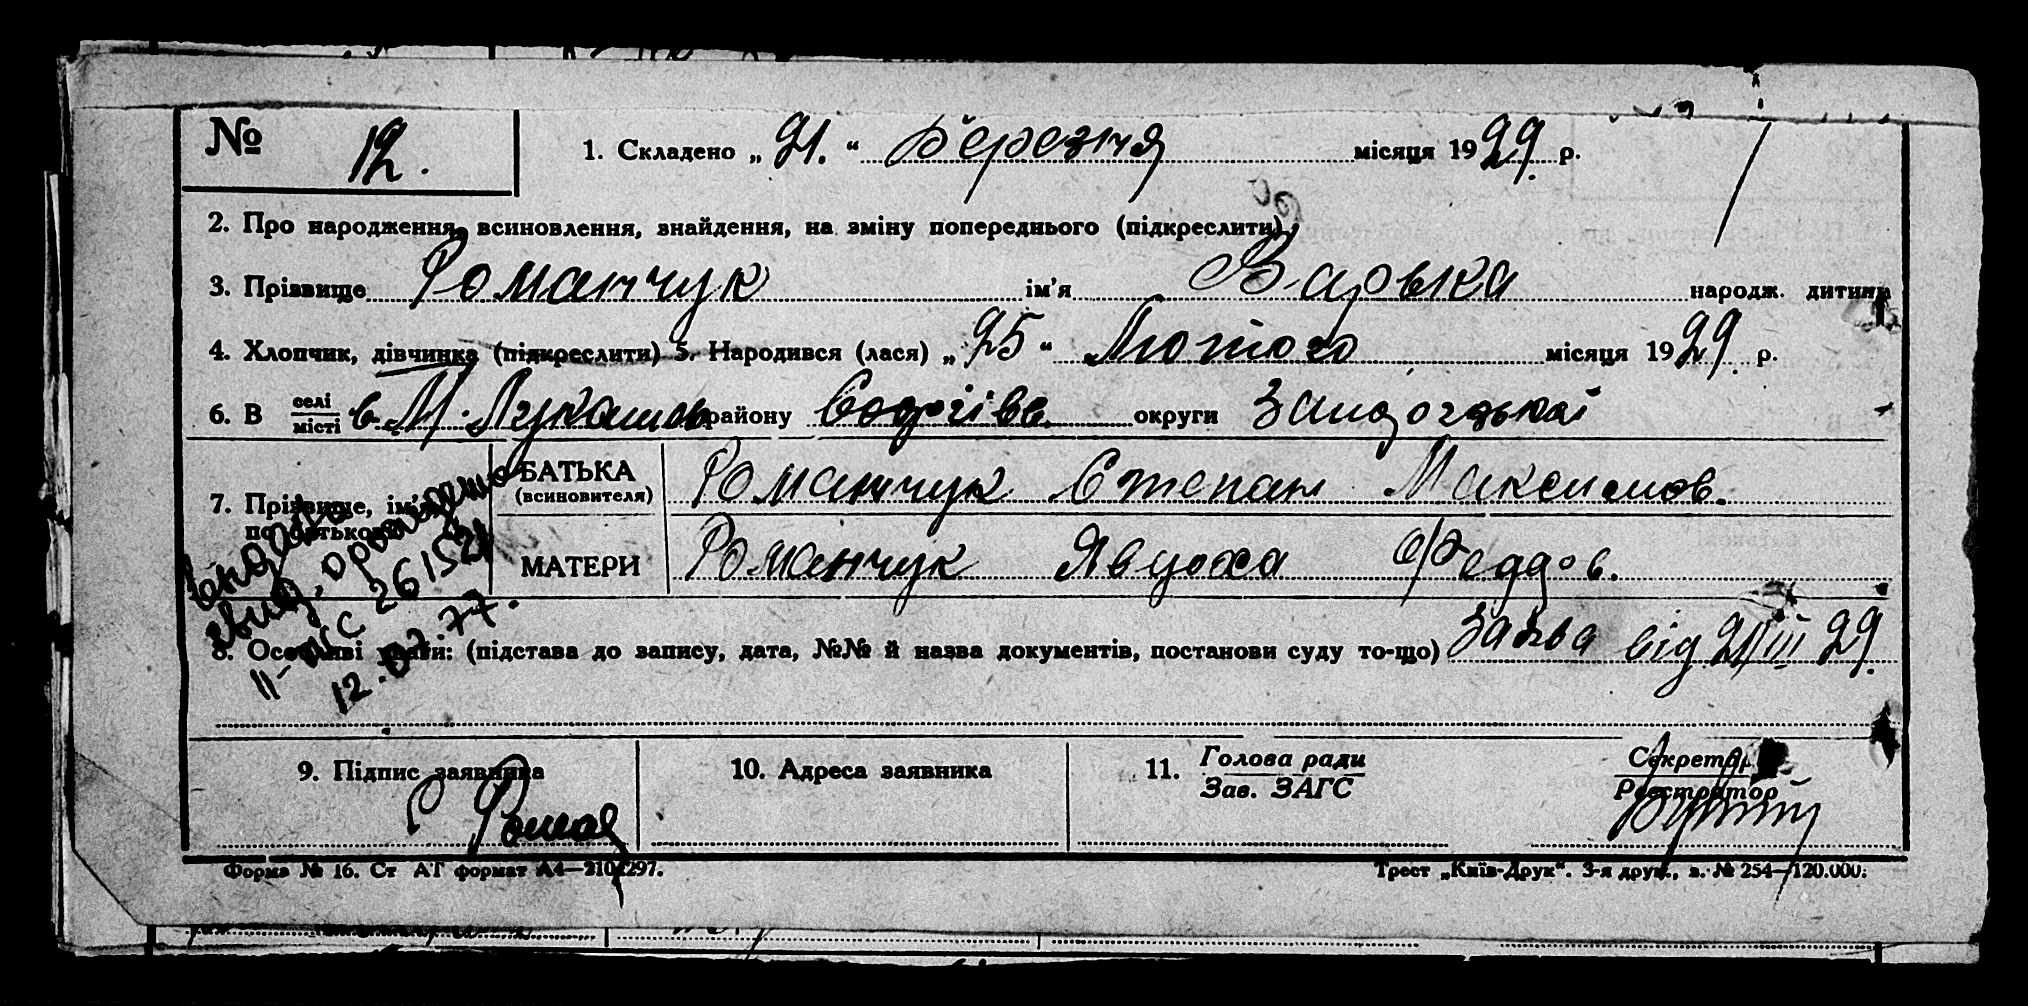 № 12. 1. Складено „21.“ Березня місяця 1929. р.
2. Про народження, всиновлення, знайдення, на зміну попереднього (підкреслити)
3. Прізвище Романчук ім'я Варька народж. дитини
4. Хлопчик, дівчинка (підкреслити) 5. Народився (лася) „25“ Лютого місяця 1929. р.
6. В селі місті с. М. Лукашов. району округи
7. Прізвище, ім'я, по батькові БАТЬКА (всиновителя) Романчук Степан Максимов.
МАТЕРИ Романчук Явдоха Феддов.
261521
12.07.77.
8. Особливі уваги: (підстава до запису, дата, №№ й назва документів, постанови суду то-що) Заява від 21/III 29.
9. Підпис заявника 10. Адреса заявника 11. Голова ради Зав. ЗАГС Секретар Реєстратор
Форма № 16. Ст АТ формат А4—210×297. Трест „Київ-Друк“. 3-я друк., з. № 254—120.000.